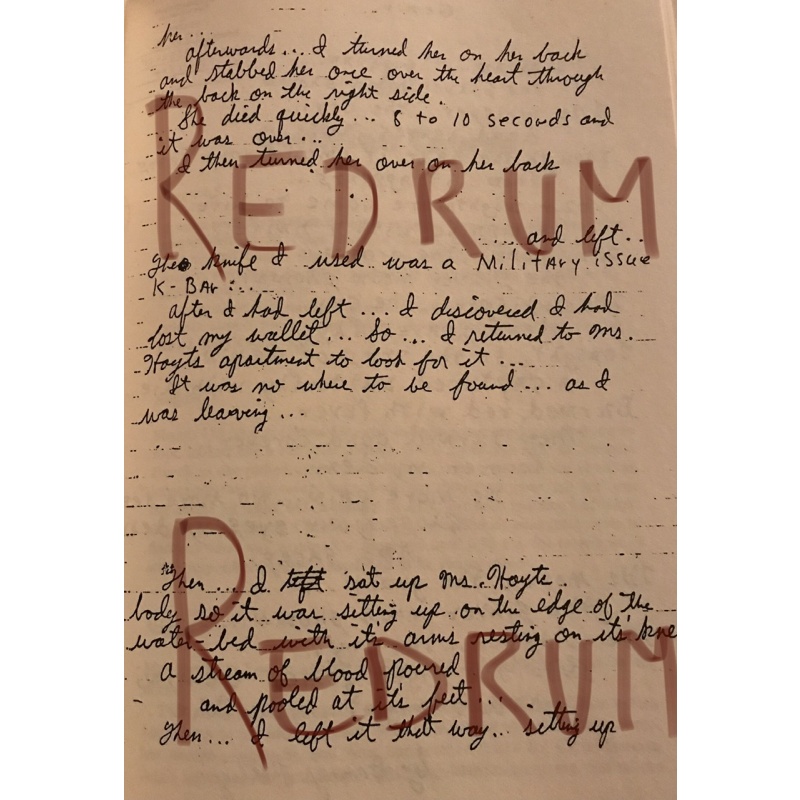 her...
afterwards... I turned her on her back
and stabbed her once over the heart through
the back on the right side.
She died quickly... 8 to 10 seconds and
it was over...
I then turned her over on her back
REDRUM
... and left..
The knife I used was a Military issue
K-BAr...
after I had left... I discovered I had
lost my wallet... So... I returned to Ms.
Hoyts apartment to look for it...
It was no where to be found... as I
was leaving...
Then... I left sat up Ms. Hoyts
body so it was sitting up on the edge of the
water-bed with it's arms resting on it's kne
a stream of blood poured
and pooled at it's feet...
REDRUM
Then... I left it that way... sitting up